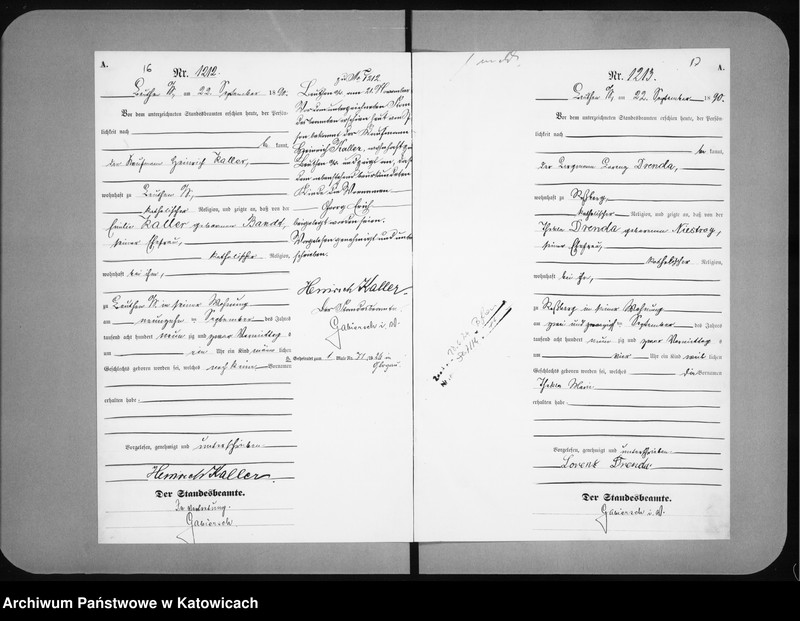 A.
16
Nr. 1212.
Beuthen O/S, am 22. September 1890.
Vor dem unterzeichneten Standesbeamten erschien heute, der Persön-
lichkeit nach
be kannt,
der Kaufmann Heinrich Kaller,
wohnhaft zu Beuthen O/S,
katholischer Religion, und zeigte an, daß von der
Kaller geborenen Bandt,
seiner Ehefrau,
katholischer Religion,
wohnhaft bei ihm,
zu Beuthen O/S in seiner Wohnung
am neunzehnten September des Jahres
tausend acht hundert neun zig und zwar Vormittag s
um Uhr ein Kind männlichen
Geschlechts geboren worden sei, welches noch keinen Vornamen
erhalten habe
Vorgelesen, genehmigt und unterschrieben
Heinrich Kaller.
Der Standesbeamte.
In Vertretung.
zu Nr. 1212
Beuthen O/S am 21. November
Vor dem unterzeichneten Stan
desbeamten erschien heut
der Kaufmann
Heinrich Kaller, wohnhaft zu
Beuthen O/S und zeigte an, daß
dem nebenstehend beurkundeten
Kinde die Vornamen
Georg Erich
beigelegt worden seien.
Vorgelesen genehmigt und unter
schrieben
Heinrich Kaller.
Der Standesbeamte
17
A.
Nr. 1213.
Beuthen O/S, am 22. September 1890.
Vor dem unterzeichneten Standesbeamten erschien heute, der Persön-
lichkeit nach
be kannt,
der Bergmann Lorenz Drenda,
wohnhaft zu Roßberg,
katholischer Religion, und zeigte an, daß von der
Thekla Drenda geborenen Niestroy,
seiner Ehefrau,
katholischer Religion,
wohnhaft bei ihm,
zu Roßberg in seiner Wohnung
am zwei und zwanzigsten September des Jahres
tausend acht hundert neun zig und zwar Vormittag s
um vier Uhr ein Kind weiblichen
Geschlechts geboren worden sei, welches die Vornamen
Thekla Marie
erhalten habe
Vorgelesen, genehmigt und unterschrieben
Lorenz Drenda
Der Standesbeamte.
Archiwum Państwowe w Katowicach